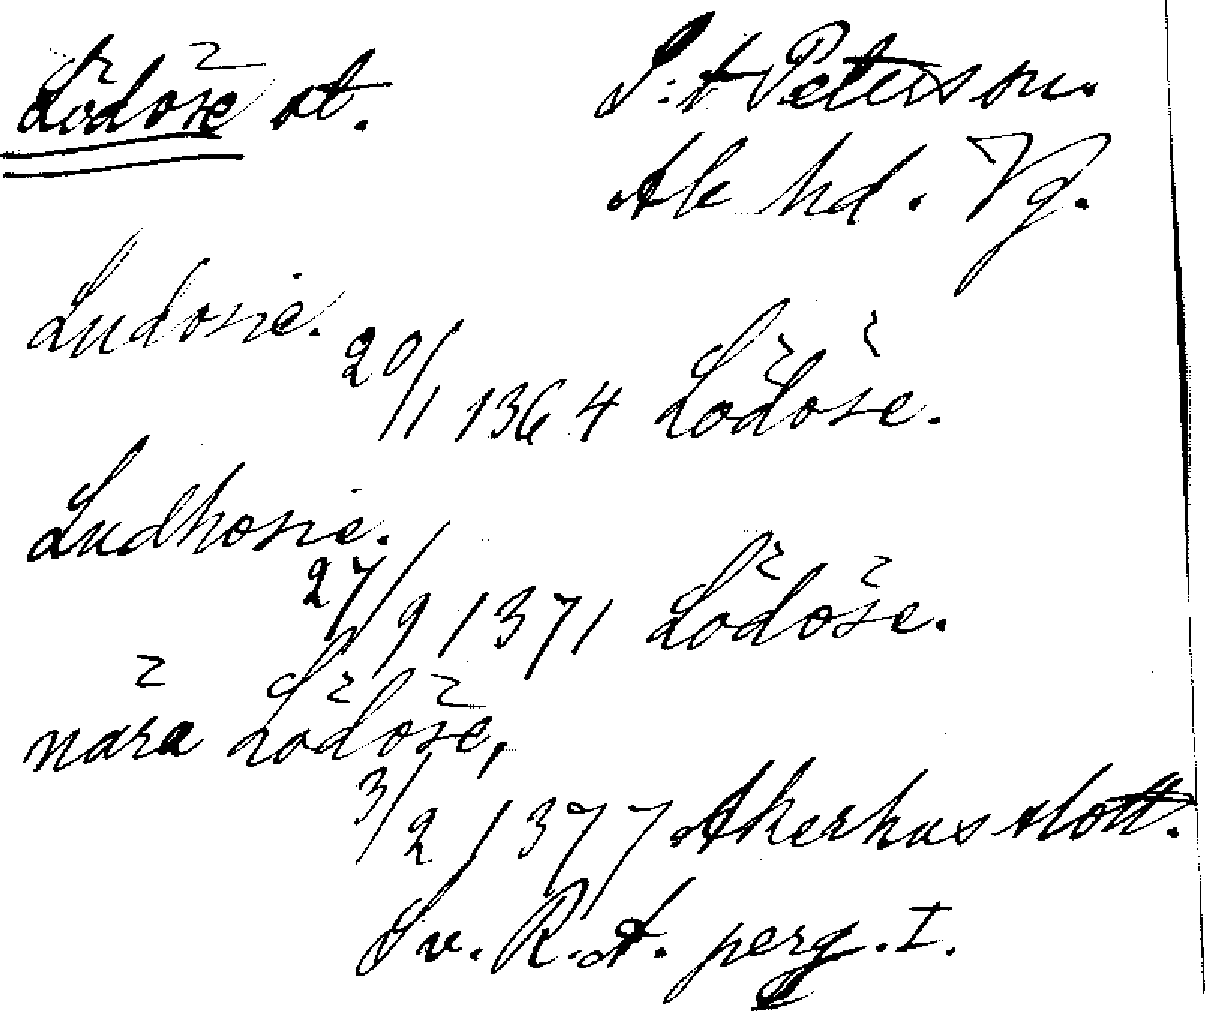 Lödöse st. S:t Peterson.
Ale hd. Vg.
Ludosie.
20/1 1364 Lödöse.
Ludhosie.
27/9 1371 Lödöse.
nära Lödöse,
3/2 1377 Akerhus slott.
Sv. R.A. perg. I.